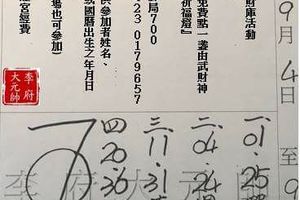 財庫活動
免費點一盞由武財神
祈福燈』
局700
23 0179657
供參加者姓名、
或國曆出生之年月日
場也可參加)
宮經費
李府
大元帥
9月4日至9
一、01.25
二、04.24
三、11.31
四、20.36
李府大元